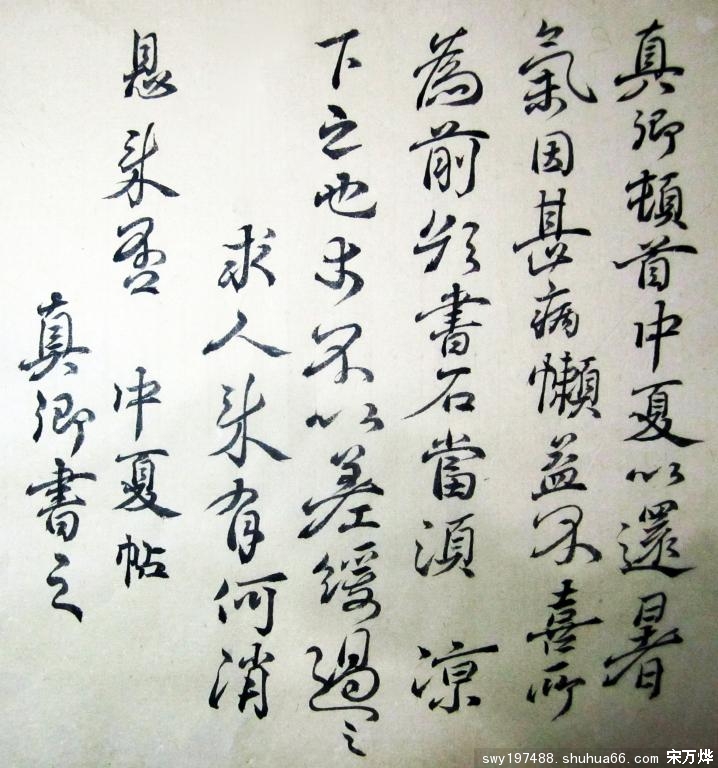 真卿頓首中夏以還暑
氣因甚病懶益不喜所
為前欲書石當須 凉
下之也古不以差緩過之
求人来有何消
息来否 中夏帖
真卿書之
swy197488.shuhua66.com 宋万烨